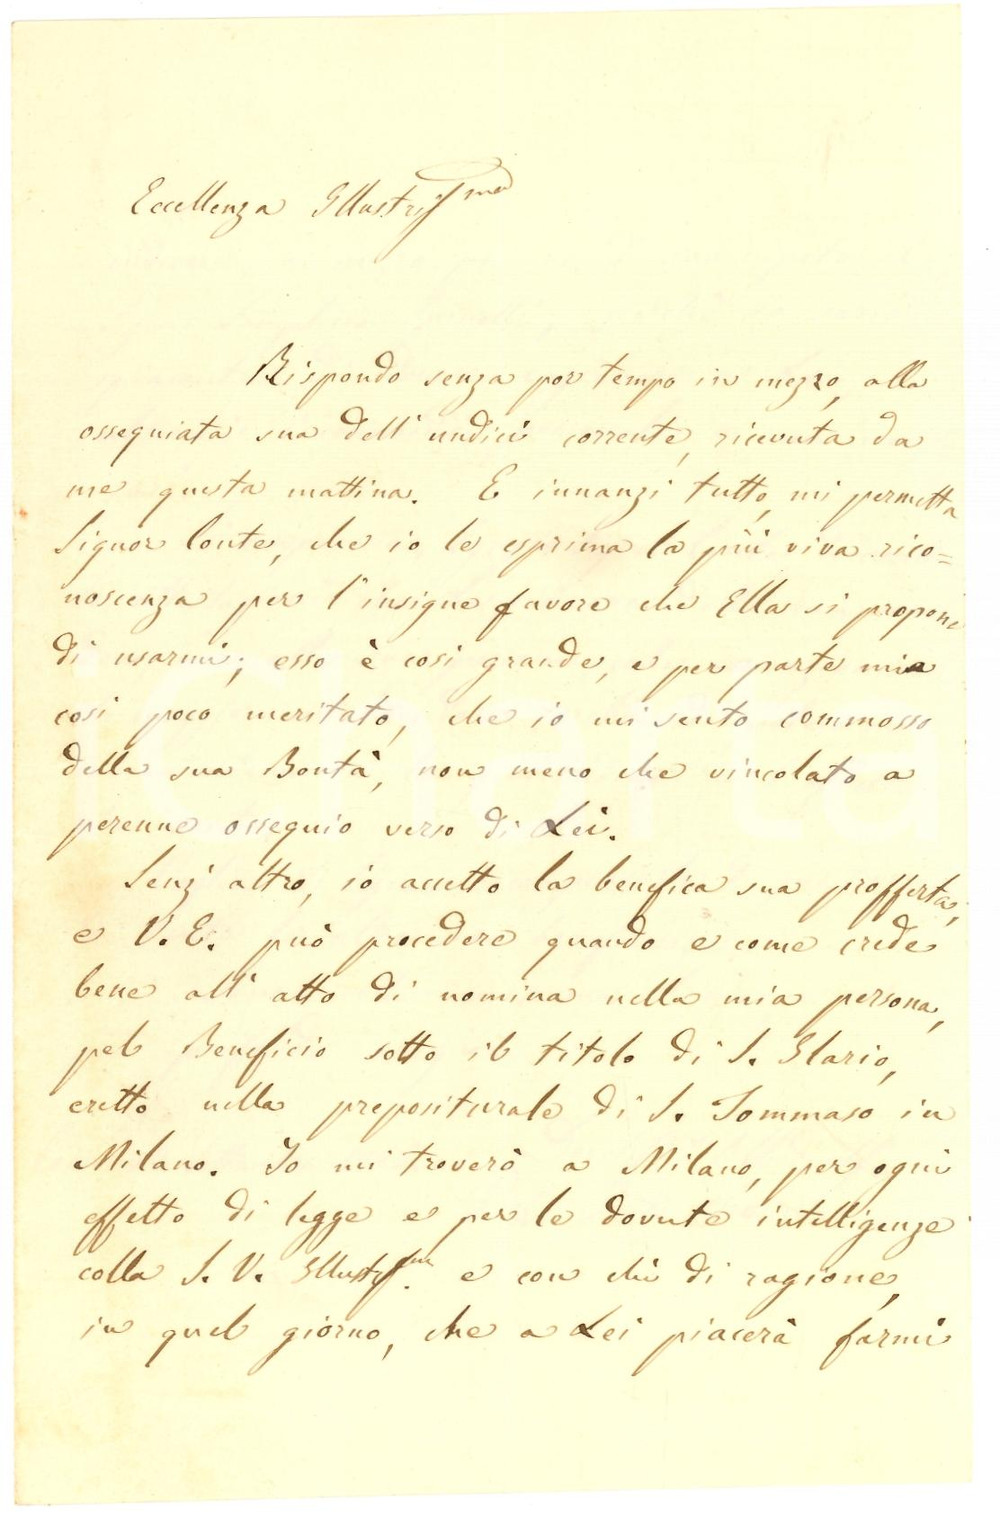 Eccellenza Illustriss.ma
Rispondo senza por tempo in mezzo, alla
ossequiata sua dell' undici corrente, ricevuta da
me questa mattina. E innanzi tutto, mi permetta
Signor Conte, che io le esprima la più viva rico=
noscenza per l'insigne favore che Ella si propone
di usarmi; esso è così grande, e per parte mia
così poco meritato, che io mi sento commosso
della sua Bontà, non meno che vincolato a
perenne ossequio verso di Lei.
Senz' altro, io accetto la benefica sua profferta,
e V. E. può procedere quando e come crede
bene all' atto di nomina nella mia persona,
pel Beneficio sotto il titolo di S. Ilario,
eretto nella prepositurale di S. Tommaso in
Milano. Io mi troverò a Milano, per ogni
effetto di legge e per le dovute intelligenze
colla S. V. Illustriss.ma e con chi di ragione,
in quel giorno, che a Lei piacerà farmi